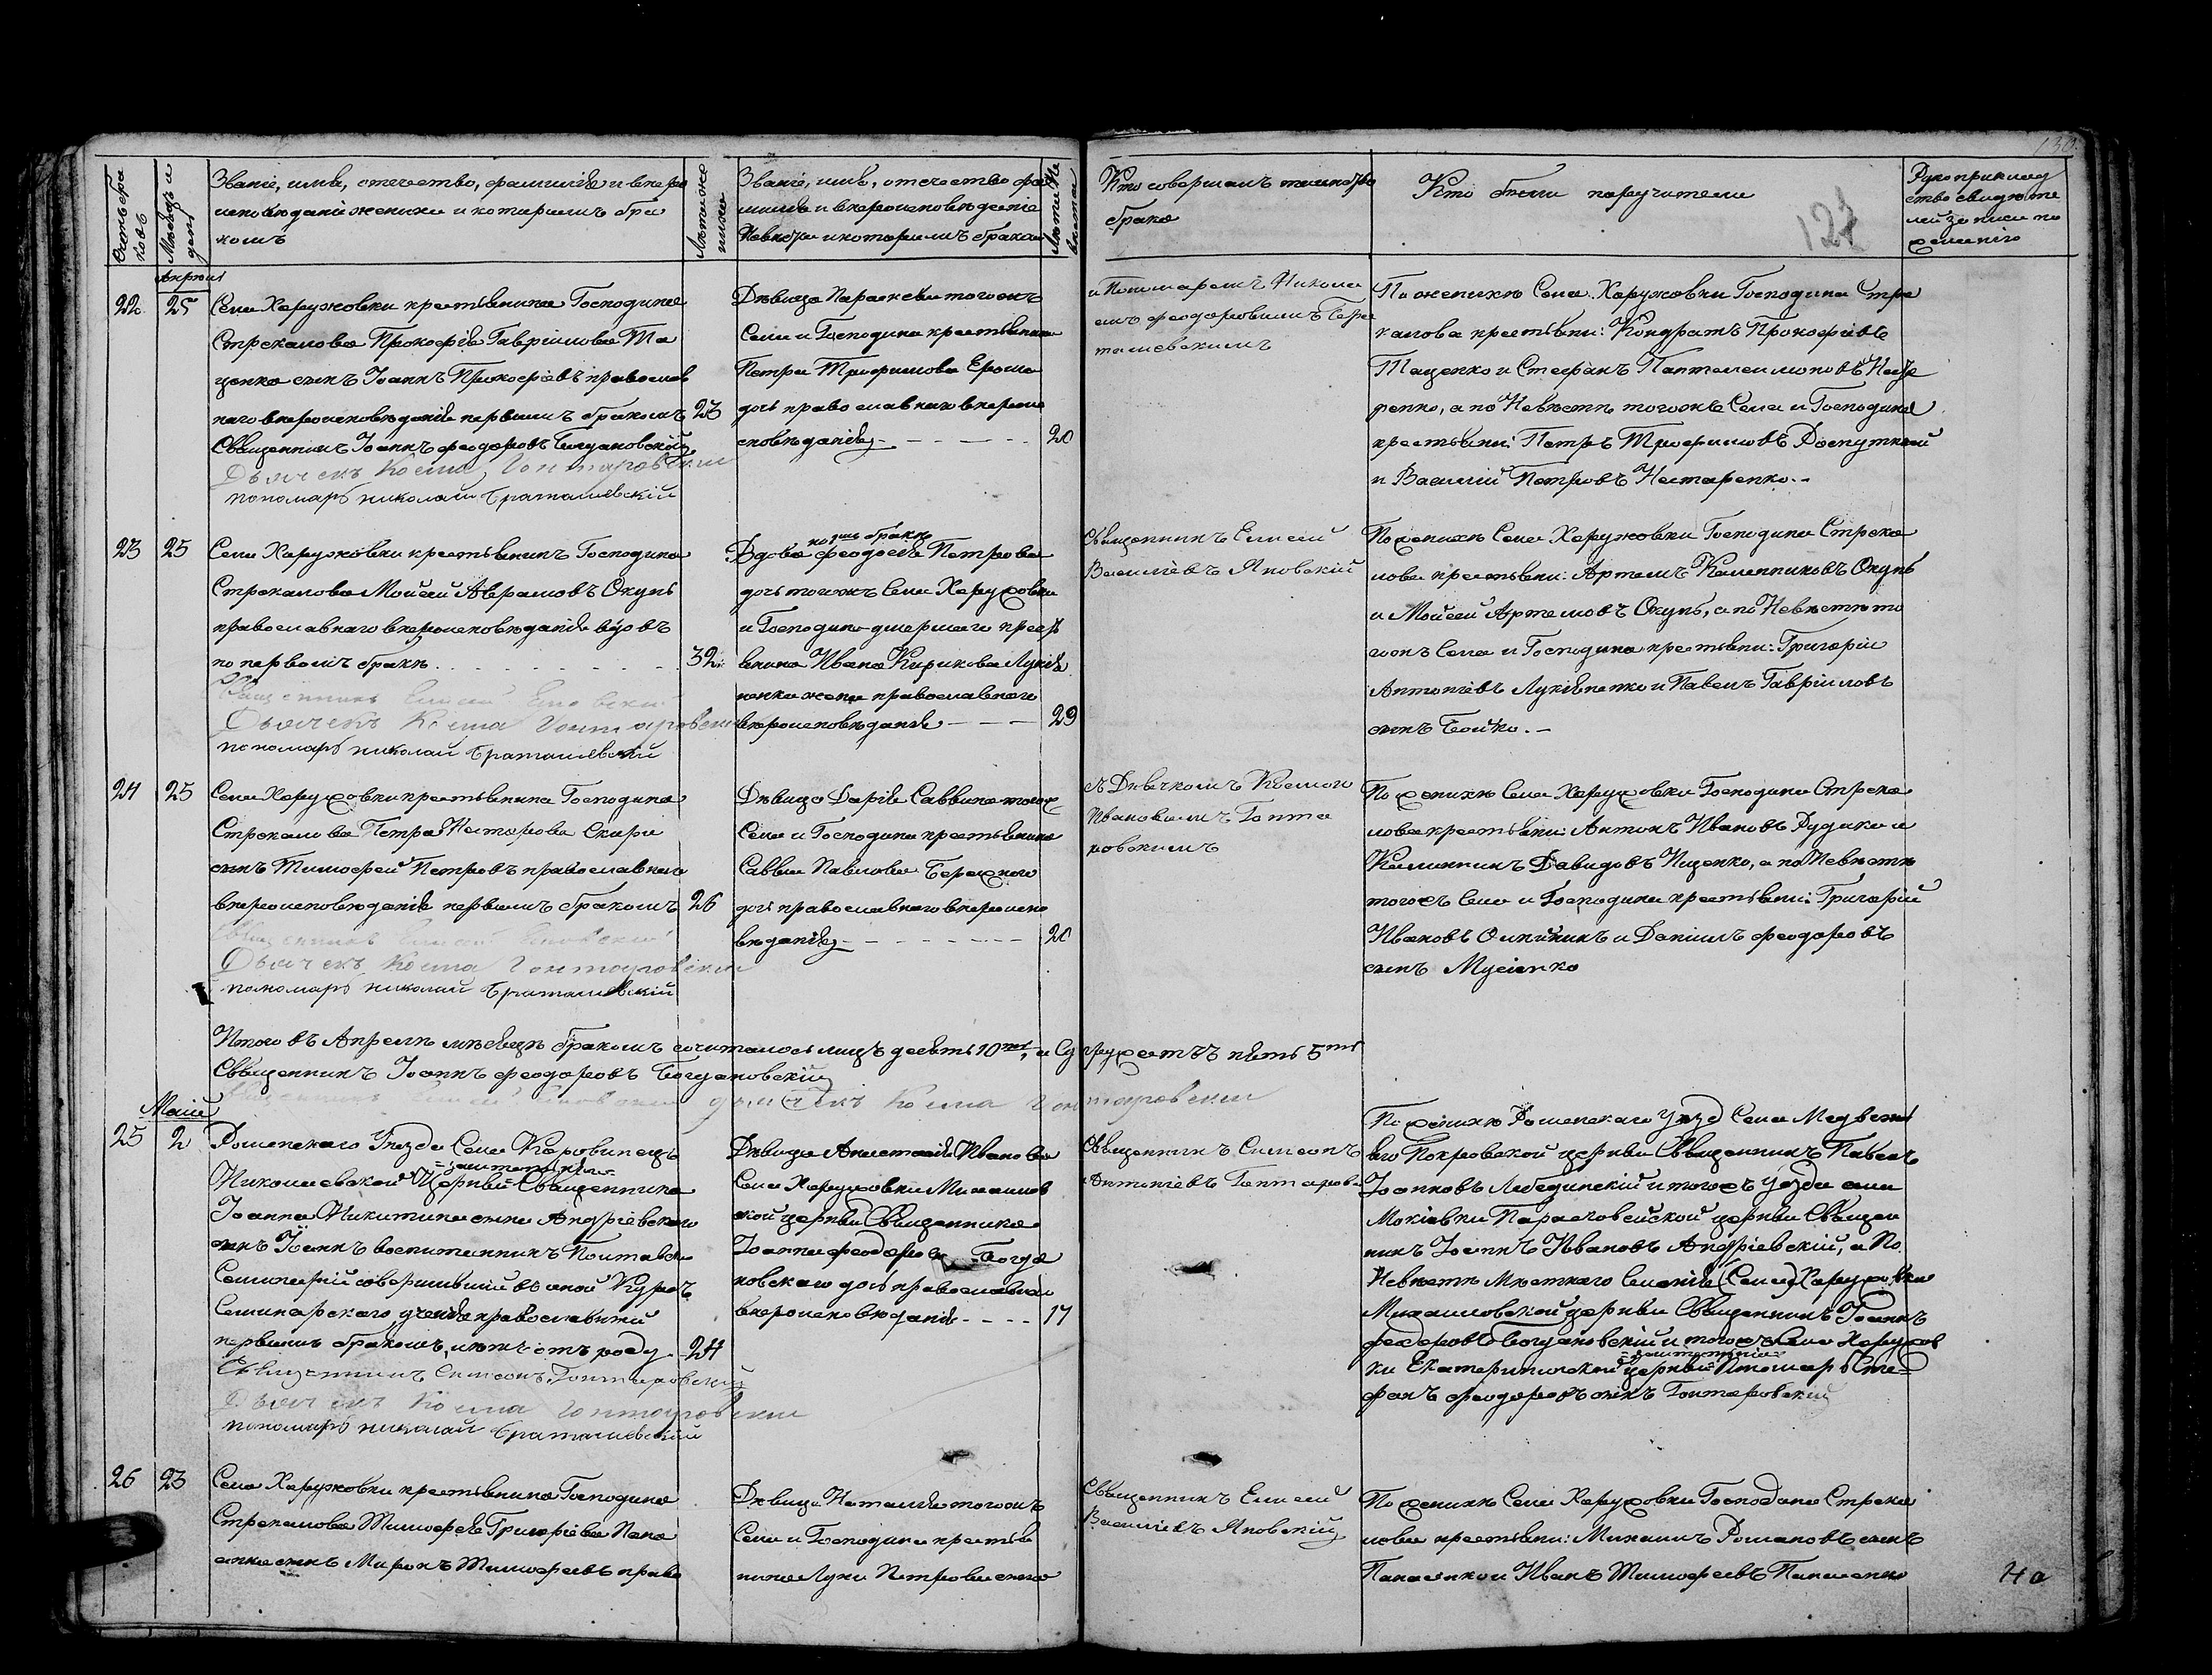 130
Счетъ бра
ковъ
Мѣсяцъ и
день
Званіе, имя, отечество, фамилія и вѣро
исповѣданіе жениха и которымъ бра
комъ
Лѣта же
ниха
Званіе, имя, отечество фа
милія и вѣроисповѣданіе
Невѣсты и которымъ бракомъ
Лѣта Не
вѣсты
Кто совершалъ таинство
брака
Кто были поручители
127
Рукоприклад
ство свидѣте
лей записи по
желанію
Апрѣль
22
25
Села Харужовки крестьянина Господина
Стрекалова Прокофія Гавріилова Та
ценка сынъ Іоаннъ Прокофіевъ православ
наго вѣроисповѣданія первымъ бракомъ
23
Священникъ Іоаннъ Феодоровъ Богдановскій
Дьячекъ Косма Гонтаровскій
пономарь николай браташевскій
Дѣвица Параскева тогожъ
Села и Господина крестьянина
Петра Трофимова
дочь православнаго вѣроис
повѣданія
20
и Пономаремъ Никола
емъ Феодоровымъ Бра
ташевскимъ
По женихѣ Села Харужовки Господина Стре
калова крестьяни: Кондратъ Прокофіевъ
Таценко и Стефанъ Пантелеимоновъ
а по Невѣстѣ тогожъ Села и Господина
крестьяни: Петръ Трофимовъ
и Василій Петровъ Нестеренко.-
23
25
Села Харужовки крестьянинъ Господина
Стрекалова Мойсей Аврамовъ Окунь
православнаго вѣроисповѣданія вдовъ
по первомъ бракѣ
32
Священникъ Елисей Яновскій
Дьячекъ Косма Гонтаровскій
пономарь николай браташевскій
бракѣ
Вдова Феодосія Петрова
дочь тогожъ Села Харужовки
и Господина умершаго крест
янина Ивана Кирикова Лукія
ненка жена православнаго
вѣроисповѣданія
29
Священникъ Елисей
Василіевъ Яновскій
По женихѣ Села Харужовки Господина Стрека
лова крестьяни: Артемъ Калинниковъ Окунь
и Мойсей Артемовъ Окунь, а по Невѣстѣ то
гожъ Села и Господина крестьяни: Григорій
Антоніевъ Лукіяненко и Павелъ Гавріиловъ
сынъ Бойко.-
24
25
Села Харужовки крестьянина Господина
Стрекалова Петра Нестерова Скири
сынъ Тимофей Петровъ православнаго
вѣроисповѣданія первымъ бракомъ
26
Священникъ Елисей Яновскій
Дьячекъ Косма Гонтаровскій
пономарь николай браташевскій
Дѣвица Дарія Саввина тогож
Села и Господина крестьянина
Саввы Павлова Бережного
дочь православнаго вѣроиспо
вѣданія
20
съ Дьячкомъ Космою
Ивановымъ Гонта
ровскимъ
По женихѣ Села Харужовки Господина Стрека
лова крестьяни: Антонъ Ивановъ Дудака и
Калинникъ Давидовъ Ищенко, а по Невѣстѣ
тогожъ Села и Господина крестьяни: Григорій
Ивановъ Олійникъ и Даніилъ Феодоровъ
сынъ Мусіенко
Итого въ Апрелѣ мѣсяцѣ бракомъ сочиталось лицъ десять 10ть, и Супружествъ пять 5ть
Священникъ Іоаннъ Феодоровъ Богдановскій
Священникъ Елисей Яновскій дьячекъ Косма Гонтаровскій
Маій
25
2
Роменскаго Уезда Села Коровинецъ
Николаевской Церкви Священника
Іоанна Никитина сына Андріевскаго
сынъ Іоаннъ воспитанникъ Полтавск
Семинаріи совершившій въ оной Курсъ
Семинарскаго ученія православный
первымъ бракомъ, лѣтъ отъ роду
24
Священникъ Симеонъ Гонтаровскій
Дьячекъ Косма Гонтаровскій
пономарь николай браташевскій
Дѣвица Анастасія Иванова
Села Харужовки Михаилов
ской церкви Священника
Іоанна Феодорова Богда
новскаго дочь православнаго
вѣроисповѣданія
17
Священникъ Симеонъ
Антоніевъ Гонтаровс
По женихѣ Роменскаго Уезда Села Медвежь
яго Покровской церкви Священникъ Павелъ
Іоанновъ Лебединскій и тогожъ Уезда села
Мокіевки Параскевейской церкви Священ
никъ Іоаннъ Ивановъ Андріевскій, а По
Невѣстѣ мѣстнаго Селенія (Села) Харужовки
Михаиловской церкви Священникъ Іоаннъ
Феодоровъ Богдановскій и тогожъ Села Харужов
ки Екатерининской церкви Пономарь Сте=
фанъ Феодоровъ сынъ Гонтаровскій
26
23
Села Харужовки крестьянина Господина
Стрекалова Тимофея Григоріева Пана
сенка сынъ Миронъ Тимофеевъ право
Дѣвица Наталія тогожъ
Села и Господина крестья
нина Луки Петрова сына
Священникъ Елисей
Василіевъ Яновскій
По женихѣ Села Харужовки Господина Стрека
лова крестьяни: Михаилъ Романовъ сынъ
Панасенко и Иванъ Тимофеевъ Панасенко